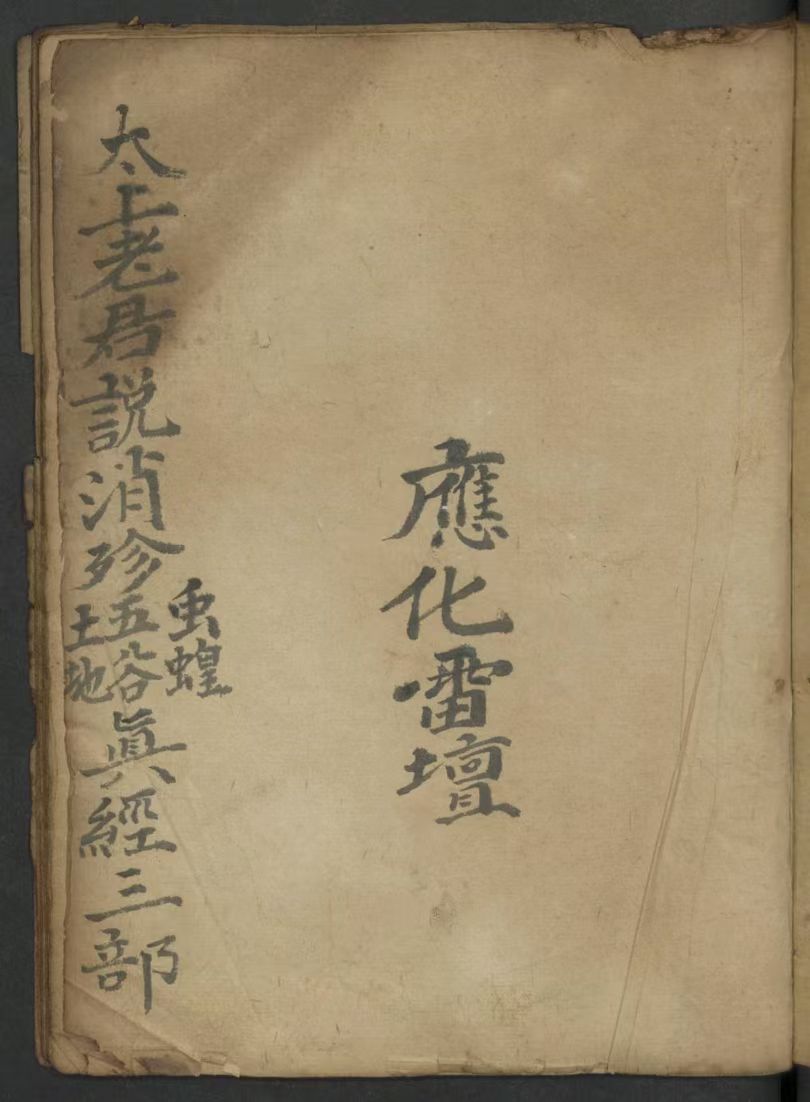 應化雷壇
太上老君説消殄
虫蝗
五谷
土地
眞經三部